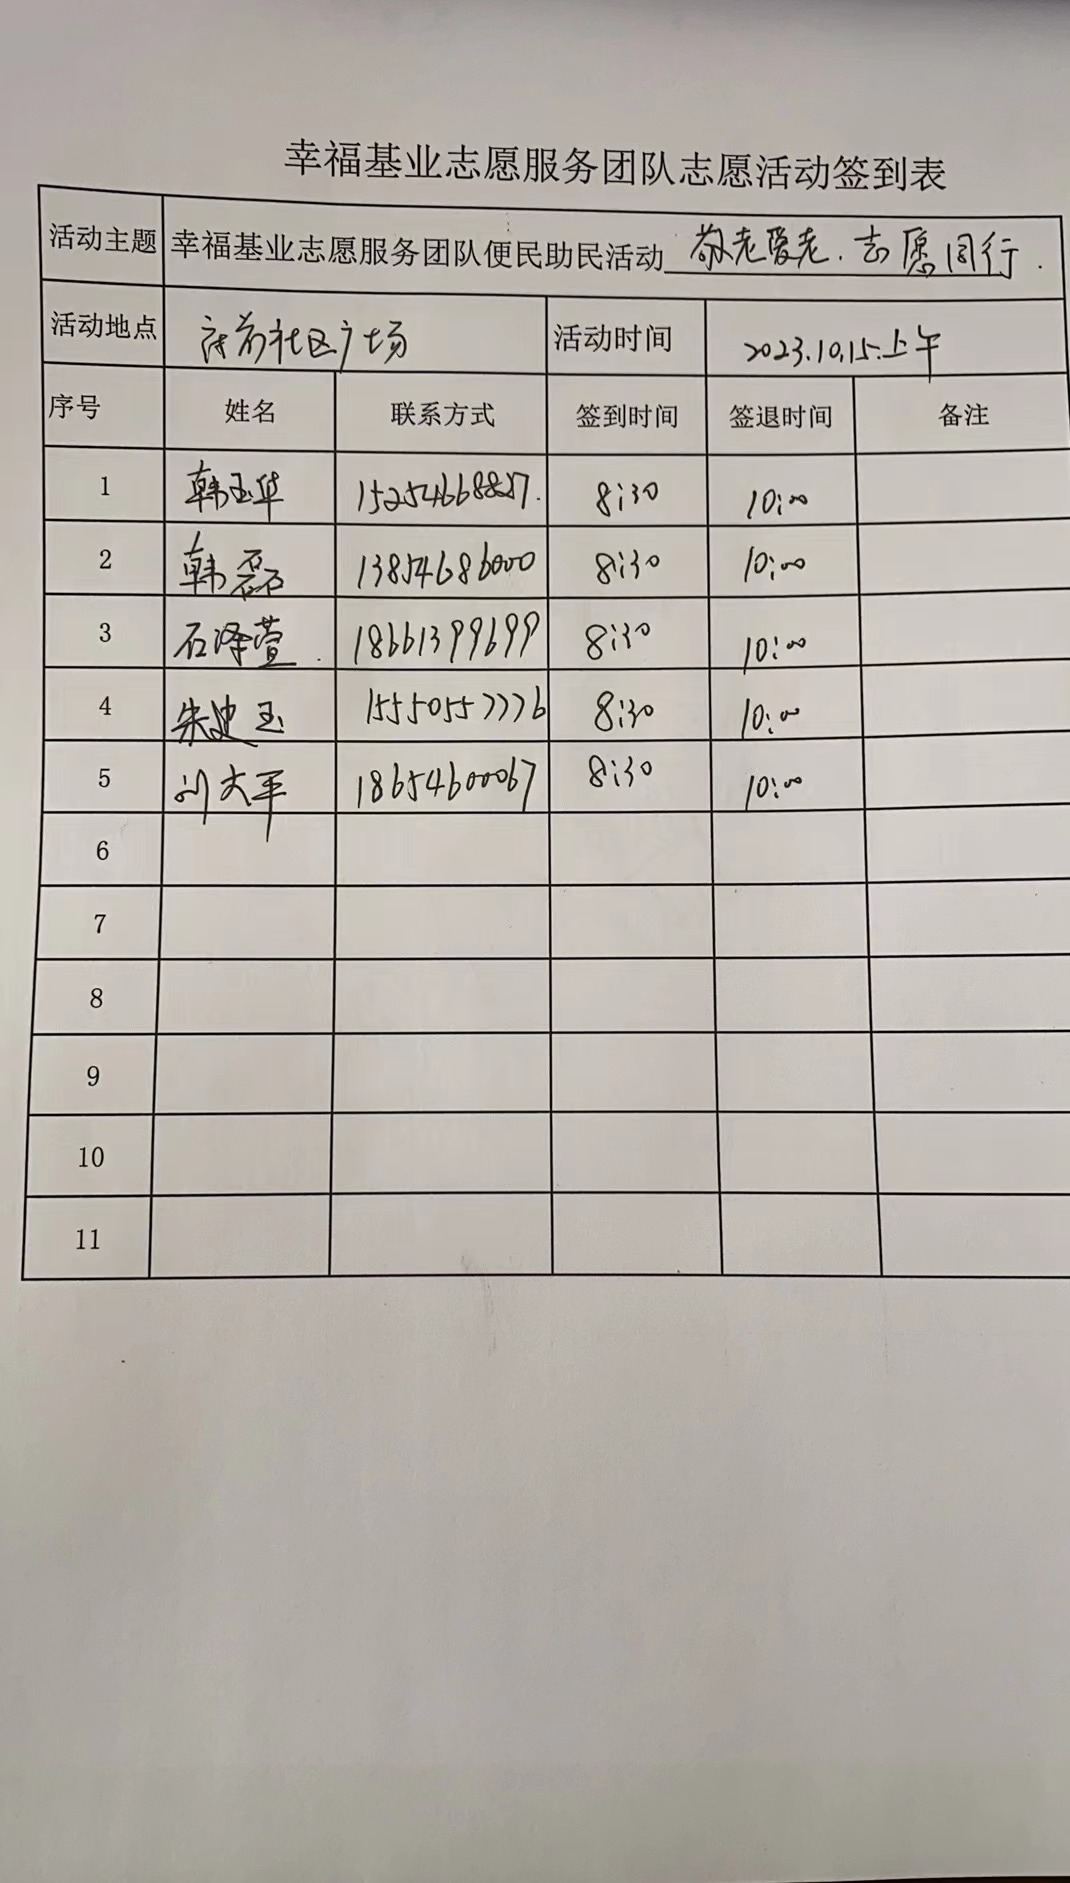 幸福基业志愿服务团队志愿活动签到表
活动主题 幸福基业志愿服务团队便民助民活动 敬老爱老.志愿同行.
活动地点 府前社区广场 活动时间 2023.10.15.上午
序号 姓名 联系方式 签到时间 签退时间 备注
1 韩玉华 8:30 10:00
2 韩磊 13854686000 8:30 10:00
3 石泽萱. 18661399699 8:30 10:00
4 朱迪玉 15550557776 8:30 10:00
5 刘大平 18654600067 8:30 10:00
6
7
8
9
10
11